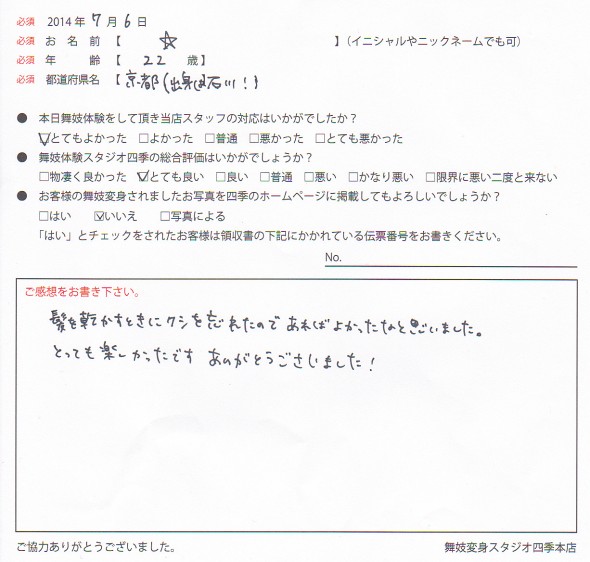 必須 2014年 7月 6日
必須 お名前【 ☆ 】(イニシャルやニックネームでも可)
必須 年齢【 22 歳】
必須 都道府県名【京都(出身は石川!)
● 本日舞妓体験をして頂き当店スタッフの対応はいかがでしたか?
☑とてもよかった □よかった □普通 □悪かった □とても悪かった
● 舞妓体験スタジオ四季の総合評価はいかがでしょうか?
□物凄く良かった ☑とても良い □良い □普通 □悪い □かなり悪い □限界に悪い二度と来ない
● お客様の舞妓変身されましたお写真を四季のホームページに掲載してもよろしいでしょうか?
□はい ☑いいえ □写真による
「はい」とチェックをされたお客様は領収書の下記にかかれている伝票番号をお書きください。
No.
ご感想をお書き下さい。
髪を乾かすときにクシを忘れたのであればよかったなと思いました。
とっても楽しかったです ありがとうございました!
ご協力ありがとうございました。 舞妓変身スタジオ四季本店